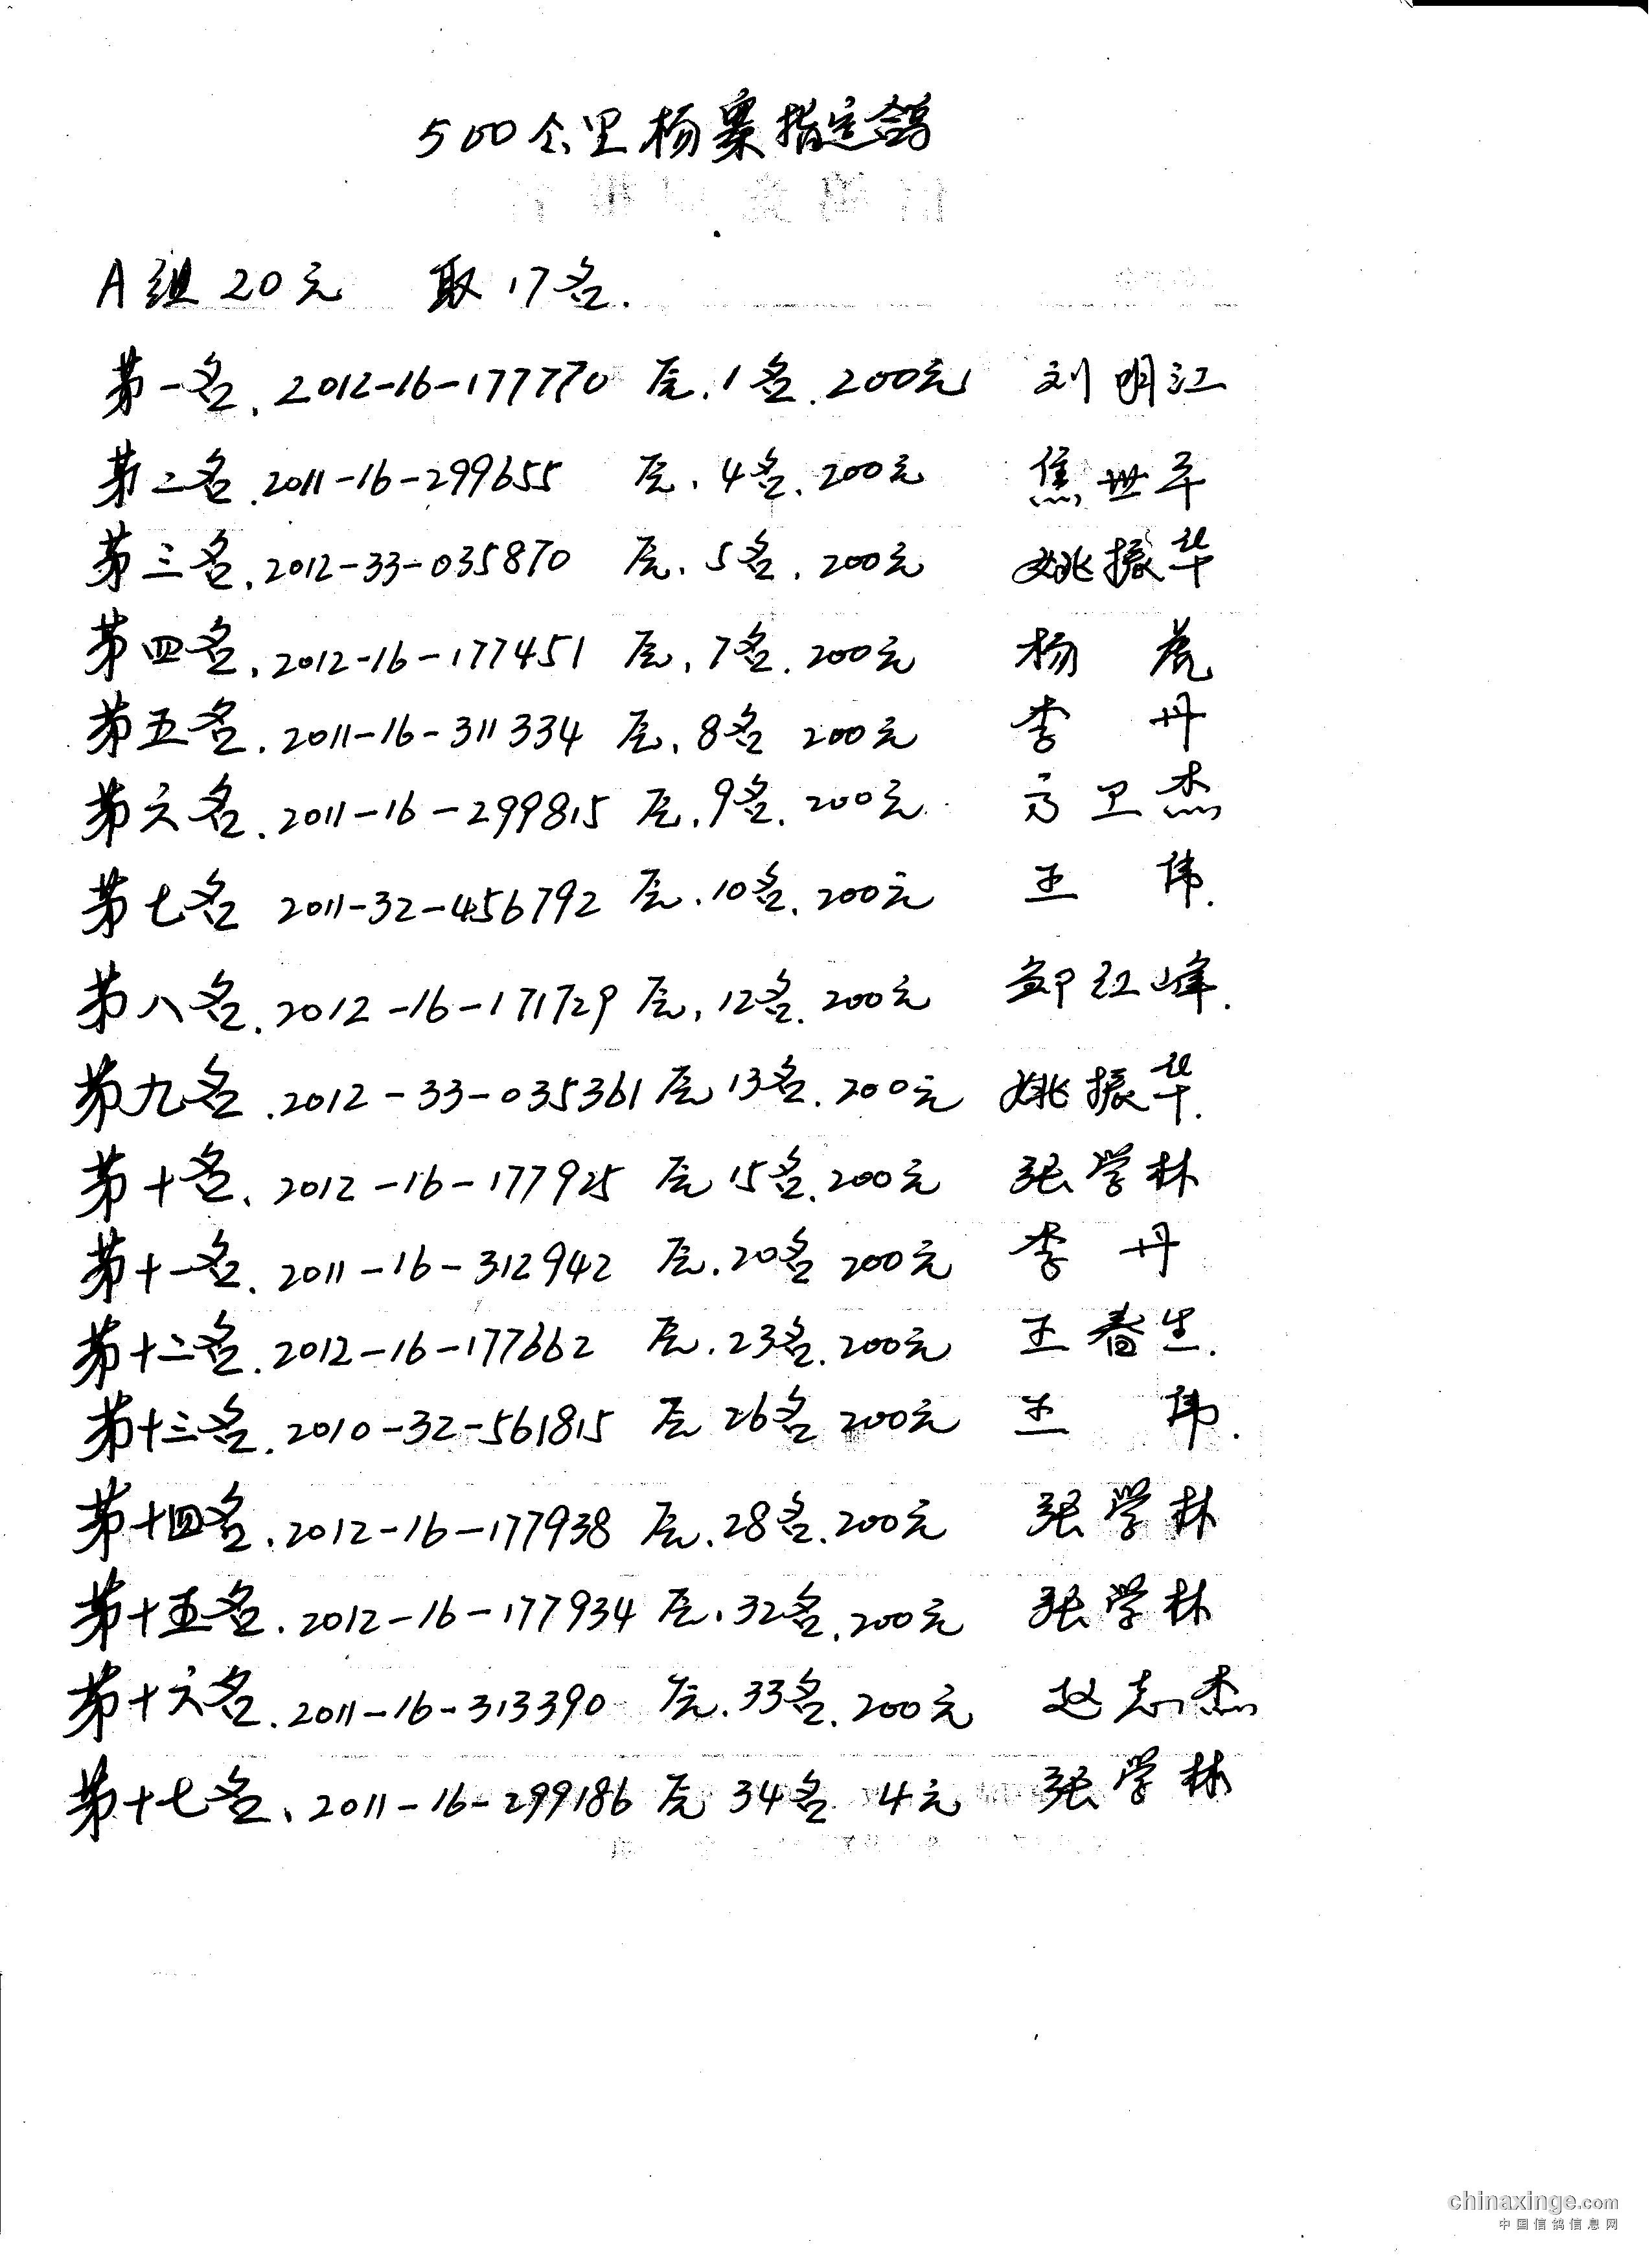 500公里杨寨指定鸽
A组20元 取17名.
第一名.2012-16-177770 原.1名.200元 刘明江
第二名.2011-16-299655 原.4名.200元 焦世平
第三名.2012-33-035870 原.5名.200元 姚振华
第四名.2012-16-177451 原.7名.200元 杨虎
第五名.2011-16-311334 原.8名 200元 李丹
第六名.2011-16-299815 原.9名.200元 方卫杰
第七名 2011-32-456792 原.10名.200元 王伟.
第八名.2012-16-171729 原.12名.200元 红峰.
第九名.2012-33-035361 原13名.200元 姚振华.
第十名.2012-16-177925 原15名.200元 张学林
第十一名.2011-16-312942 原.20名 200元 李丹
第十二名.2012-16-177662 原.23名.200元 王春生.
第十三名.2010-32-561815 原26名 200元 王伟.
第十四名.2012-16-177938 原.28名.200元 张学林
第十五名.2012-16-177934 原.32名.200元 张学林
第十六名.2011-16-313390 原.33名.200元 赵志杰
第十七名、2011-16-299186 原34名 4元 张学林
chinaxinge.com
中国信鸽信息网